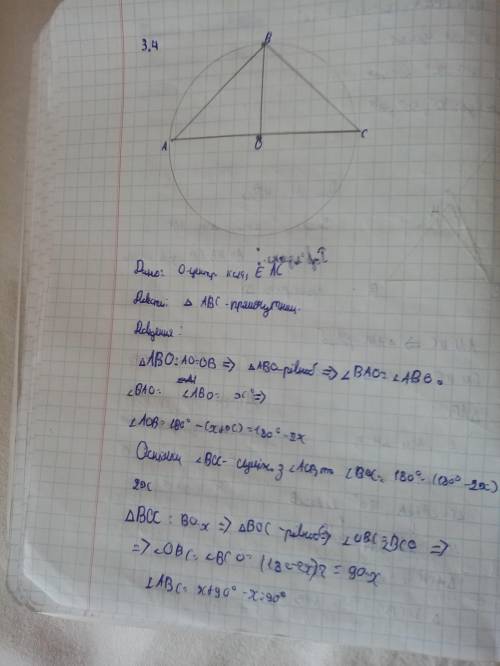 3.4
B
A
O
C
Дано: О-центр кола, Є АС
Довести: △ ABC - прямокутний.
Доведення:
△ABO: AO=OB => △ABO-рівноб => ∠BAO= ∠ABO.
∠BAO= ∠ABO= x° =>
∠AOB=180° -(x+x)=180°-2x
Оскільки ∠BOC- суміж. з ∠AOB, то ∠BOC= 180°- (180°-2x)
2x
△BOC: BO=x => △BOC -рівноб => ∠OBC=∠BCO =>
=> ∠OBC= ∠BCO= (180-2x):2 = 90-x
∠ABC= x+90° -x=90°